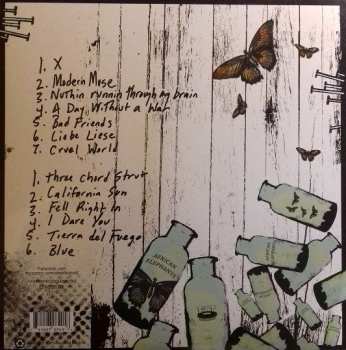 1. X
2. Modern Mese
3. Nothin runnin through my brain
4. A Day Without a War
5. Bad Friends
6. Liebe Liese
7. Cruel World
1. three chord strut
2. California Sun
3. Fell Right In
4. I Dare You
5. Tierra del Fuego
6. Blue
AFRICAN
ELEPHANTS